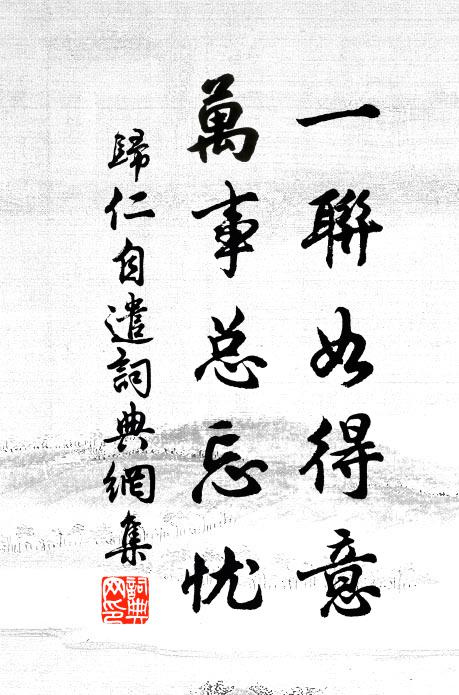 一聯如得意
萬事总忘忧
歸仁自遣詞典網集
詞典網印